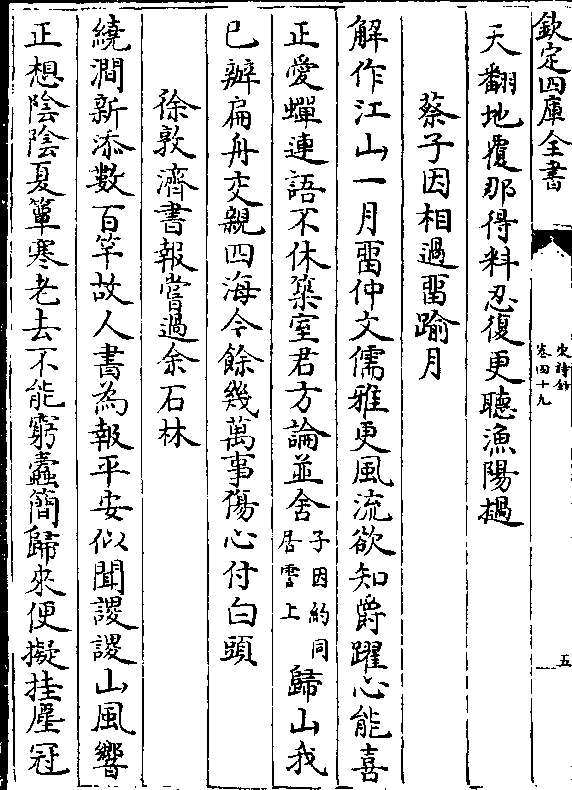 欽定四庫全書
宋詩鈔
卷四十九
五
天翻地覆那得料忍復更聽漁陽撾
蔡子因相過畱踰月
解作江山一月畱仲文儒雅更風流欲知爵躍心能喜
正愛蟬連語不休築室君方論並舍
子因約同
居霅上
歸山我
已辦扁舟交親四海今餘幾萬事傷心付白頭
徐敦濟書報嘗過余石林
繞澗新添數百竿故人書為報平安似聞謖謖山風響
正想陰陰夏簟寒老去不能窮蠹簡歸來便擬挂塵冠